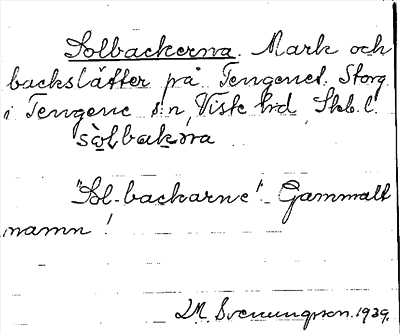 Solbackerna. Mark och
backslåtter på Tengenes. Storg
i Tengene sn, Viste hd Skb. l.
"Sol-backarne". Gammalt
namn!
Svenungsson. 1939.